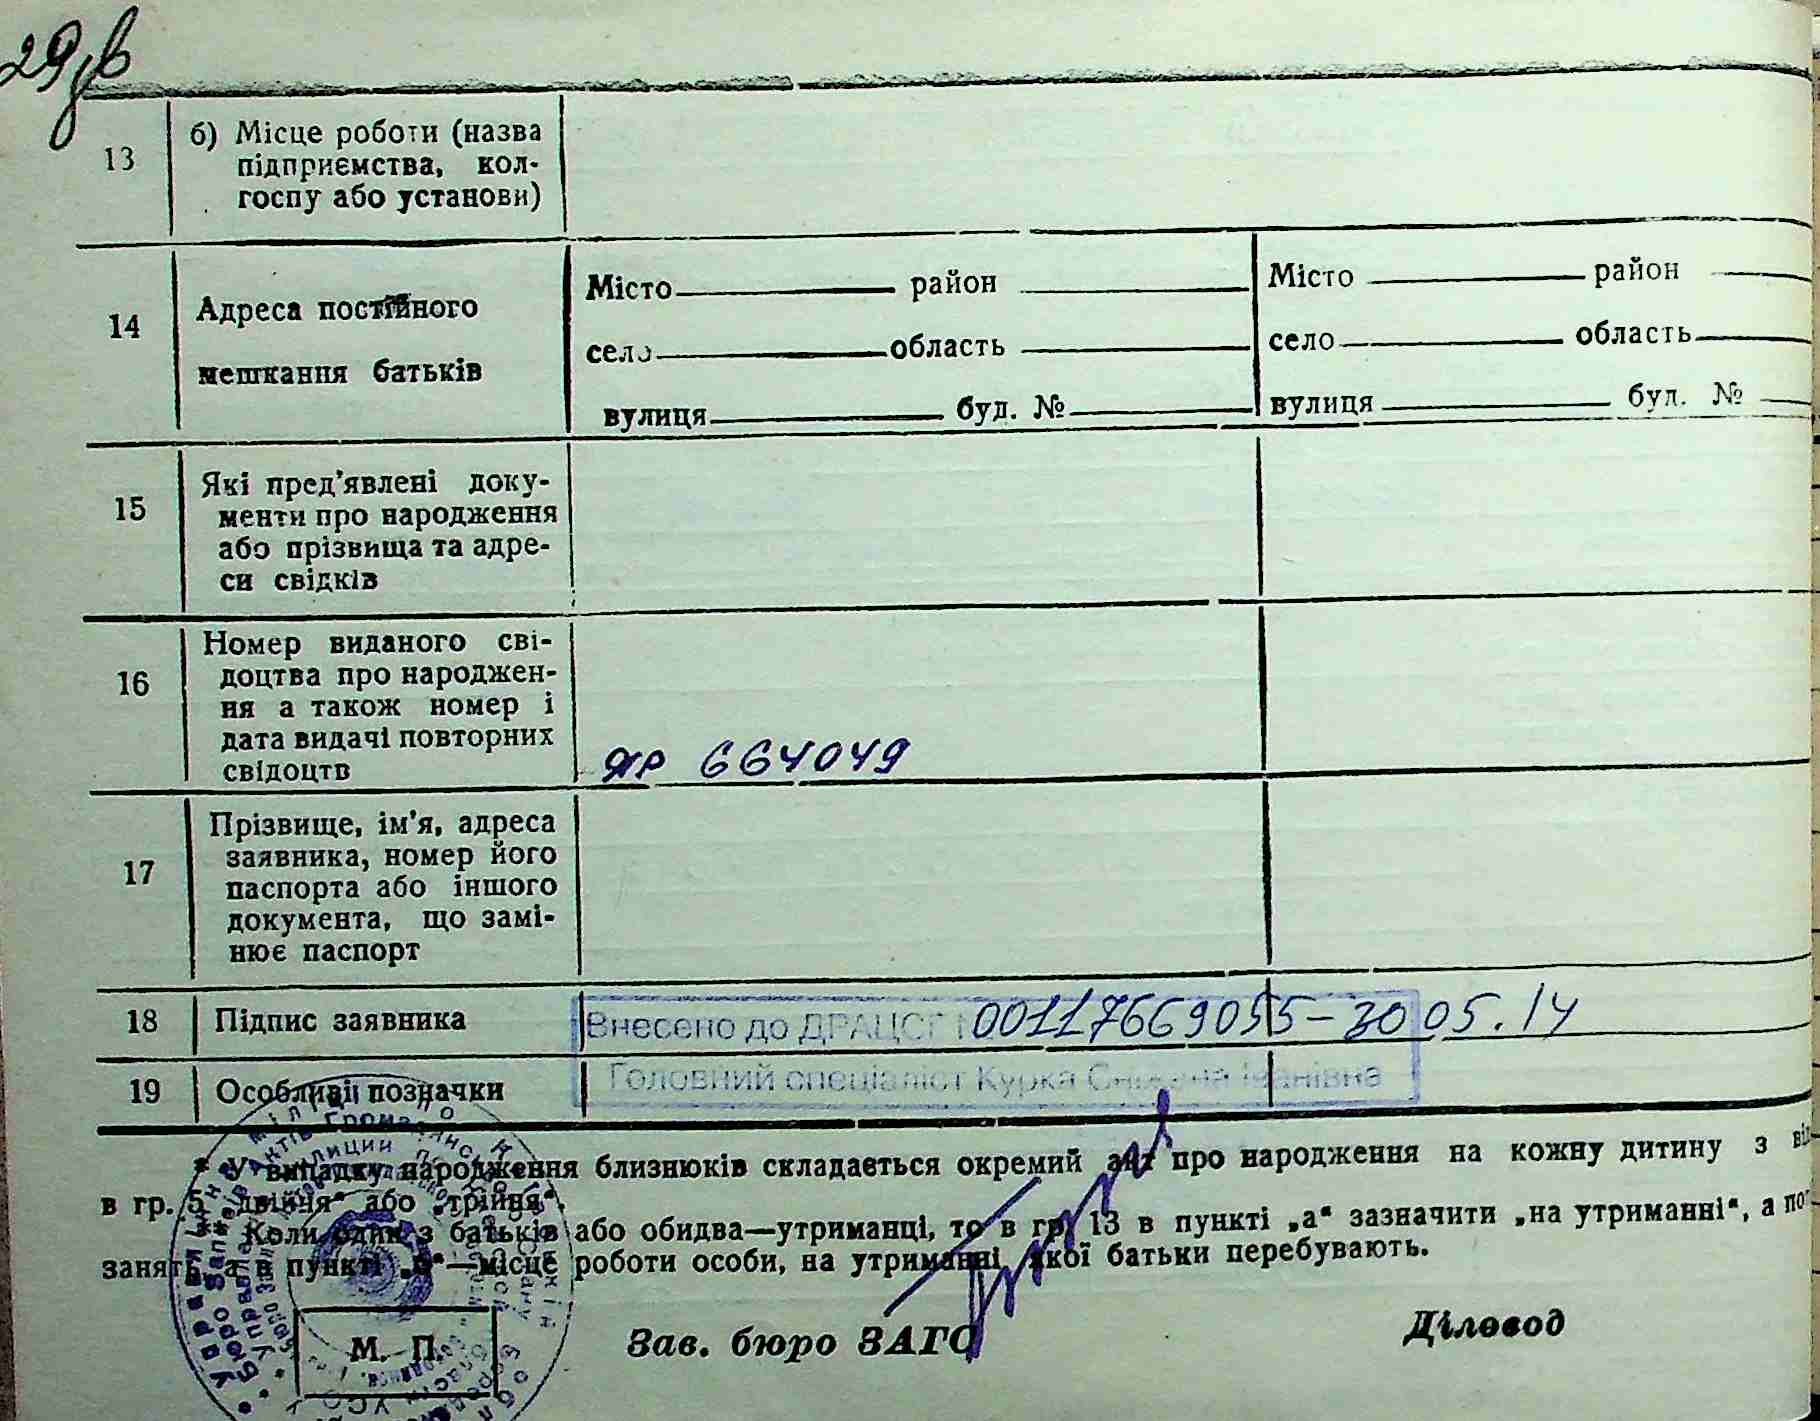 29,в
13
б) Місце роботи (назва
підприємства, кол-
госпу або установи)
14
Адреса постійного
мешкання батьків
Місто район
село область
вулиця буд. №
Місто район
село область
вулиця буд. №
15
Які пред'явлені доку-
менти про народження
або прізвища та адре-
си свідків
16
Номер виданого сві-
доцтва про народжен-
ня а також номер і
дата видачі повторних
свідоцтв
ЯР 664049
17
Прізвище, ім'я, адреса
заявника, номер його
паспорта або іншого
документа, що замі-
нює паспорт
18
Підпис заявника
Внесено до ДРАЦСГ 00117669055-30 05.14
19
Особливі позначки
Головний спеціаліст Курка Сніжана Іванівна
* У випадку народження близнюків складається окремий акт про народження на кожну дитину з
в гр. 5 „двійня“ або „трійня“.
Коли один з батьків або обидва—утриманці, то в гр. 13 в пункті „а“ зазначити „на утриманні“, а
занять, а в пункті „б“—місце роботи особи, на утриманні якої батьки перебувають.
М. П.
Зав. бюро ЗАГС
Діловод